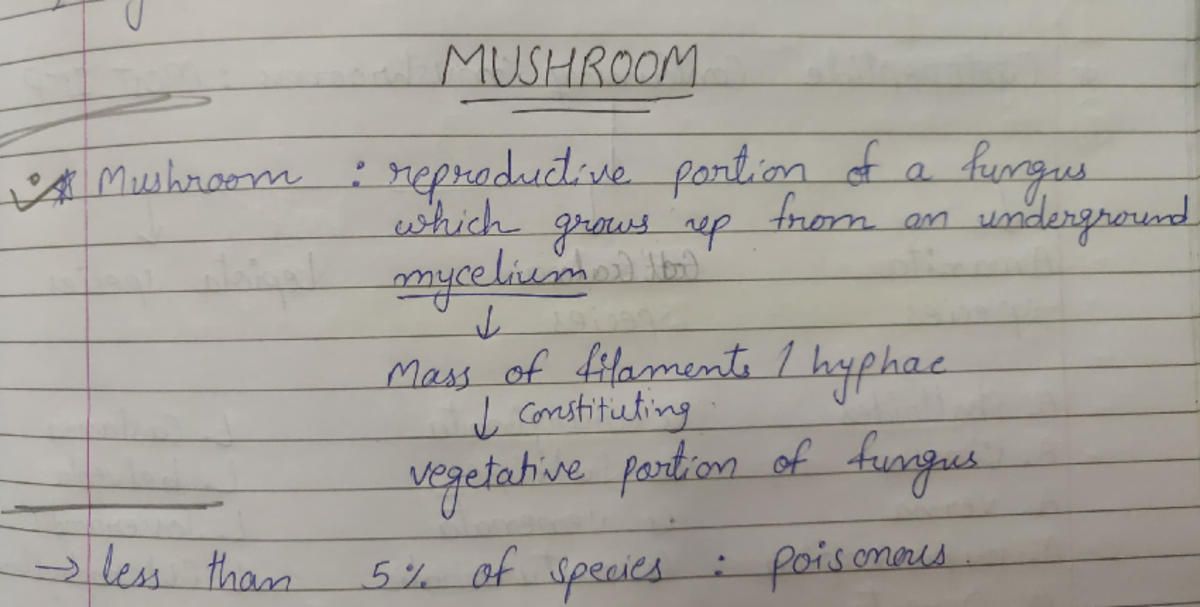 MUSHROOM
* Mushroom : reproductive portion of a fungus
which grows up from an underground
mycelium
↓
Mass of filaments / hyphae
↓ constituting
vegetative portion of fungus
→ less than 5% of species : poisonous.